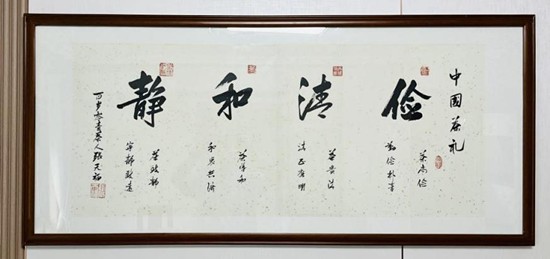 中国茶礼
俭
茶尚俭
勤俭朴素
清
茶贵清
清正廉明
和
茶导和
和衷共济
静
茶致静
宁静致远
百岁茶人张天福